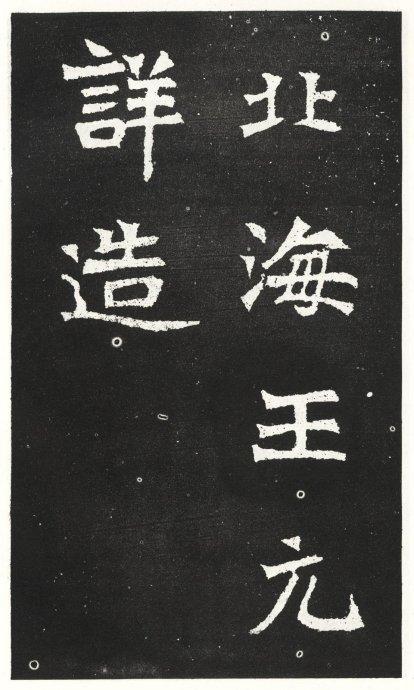 北海王元
詳造